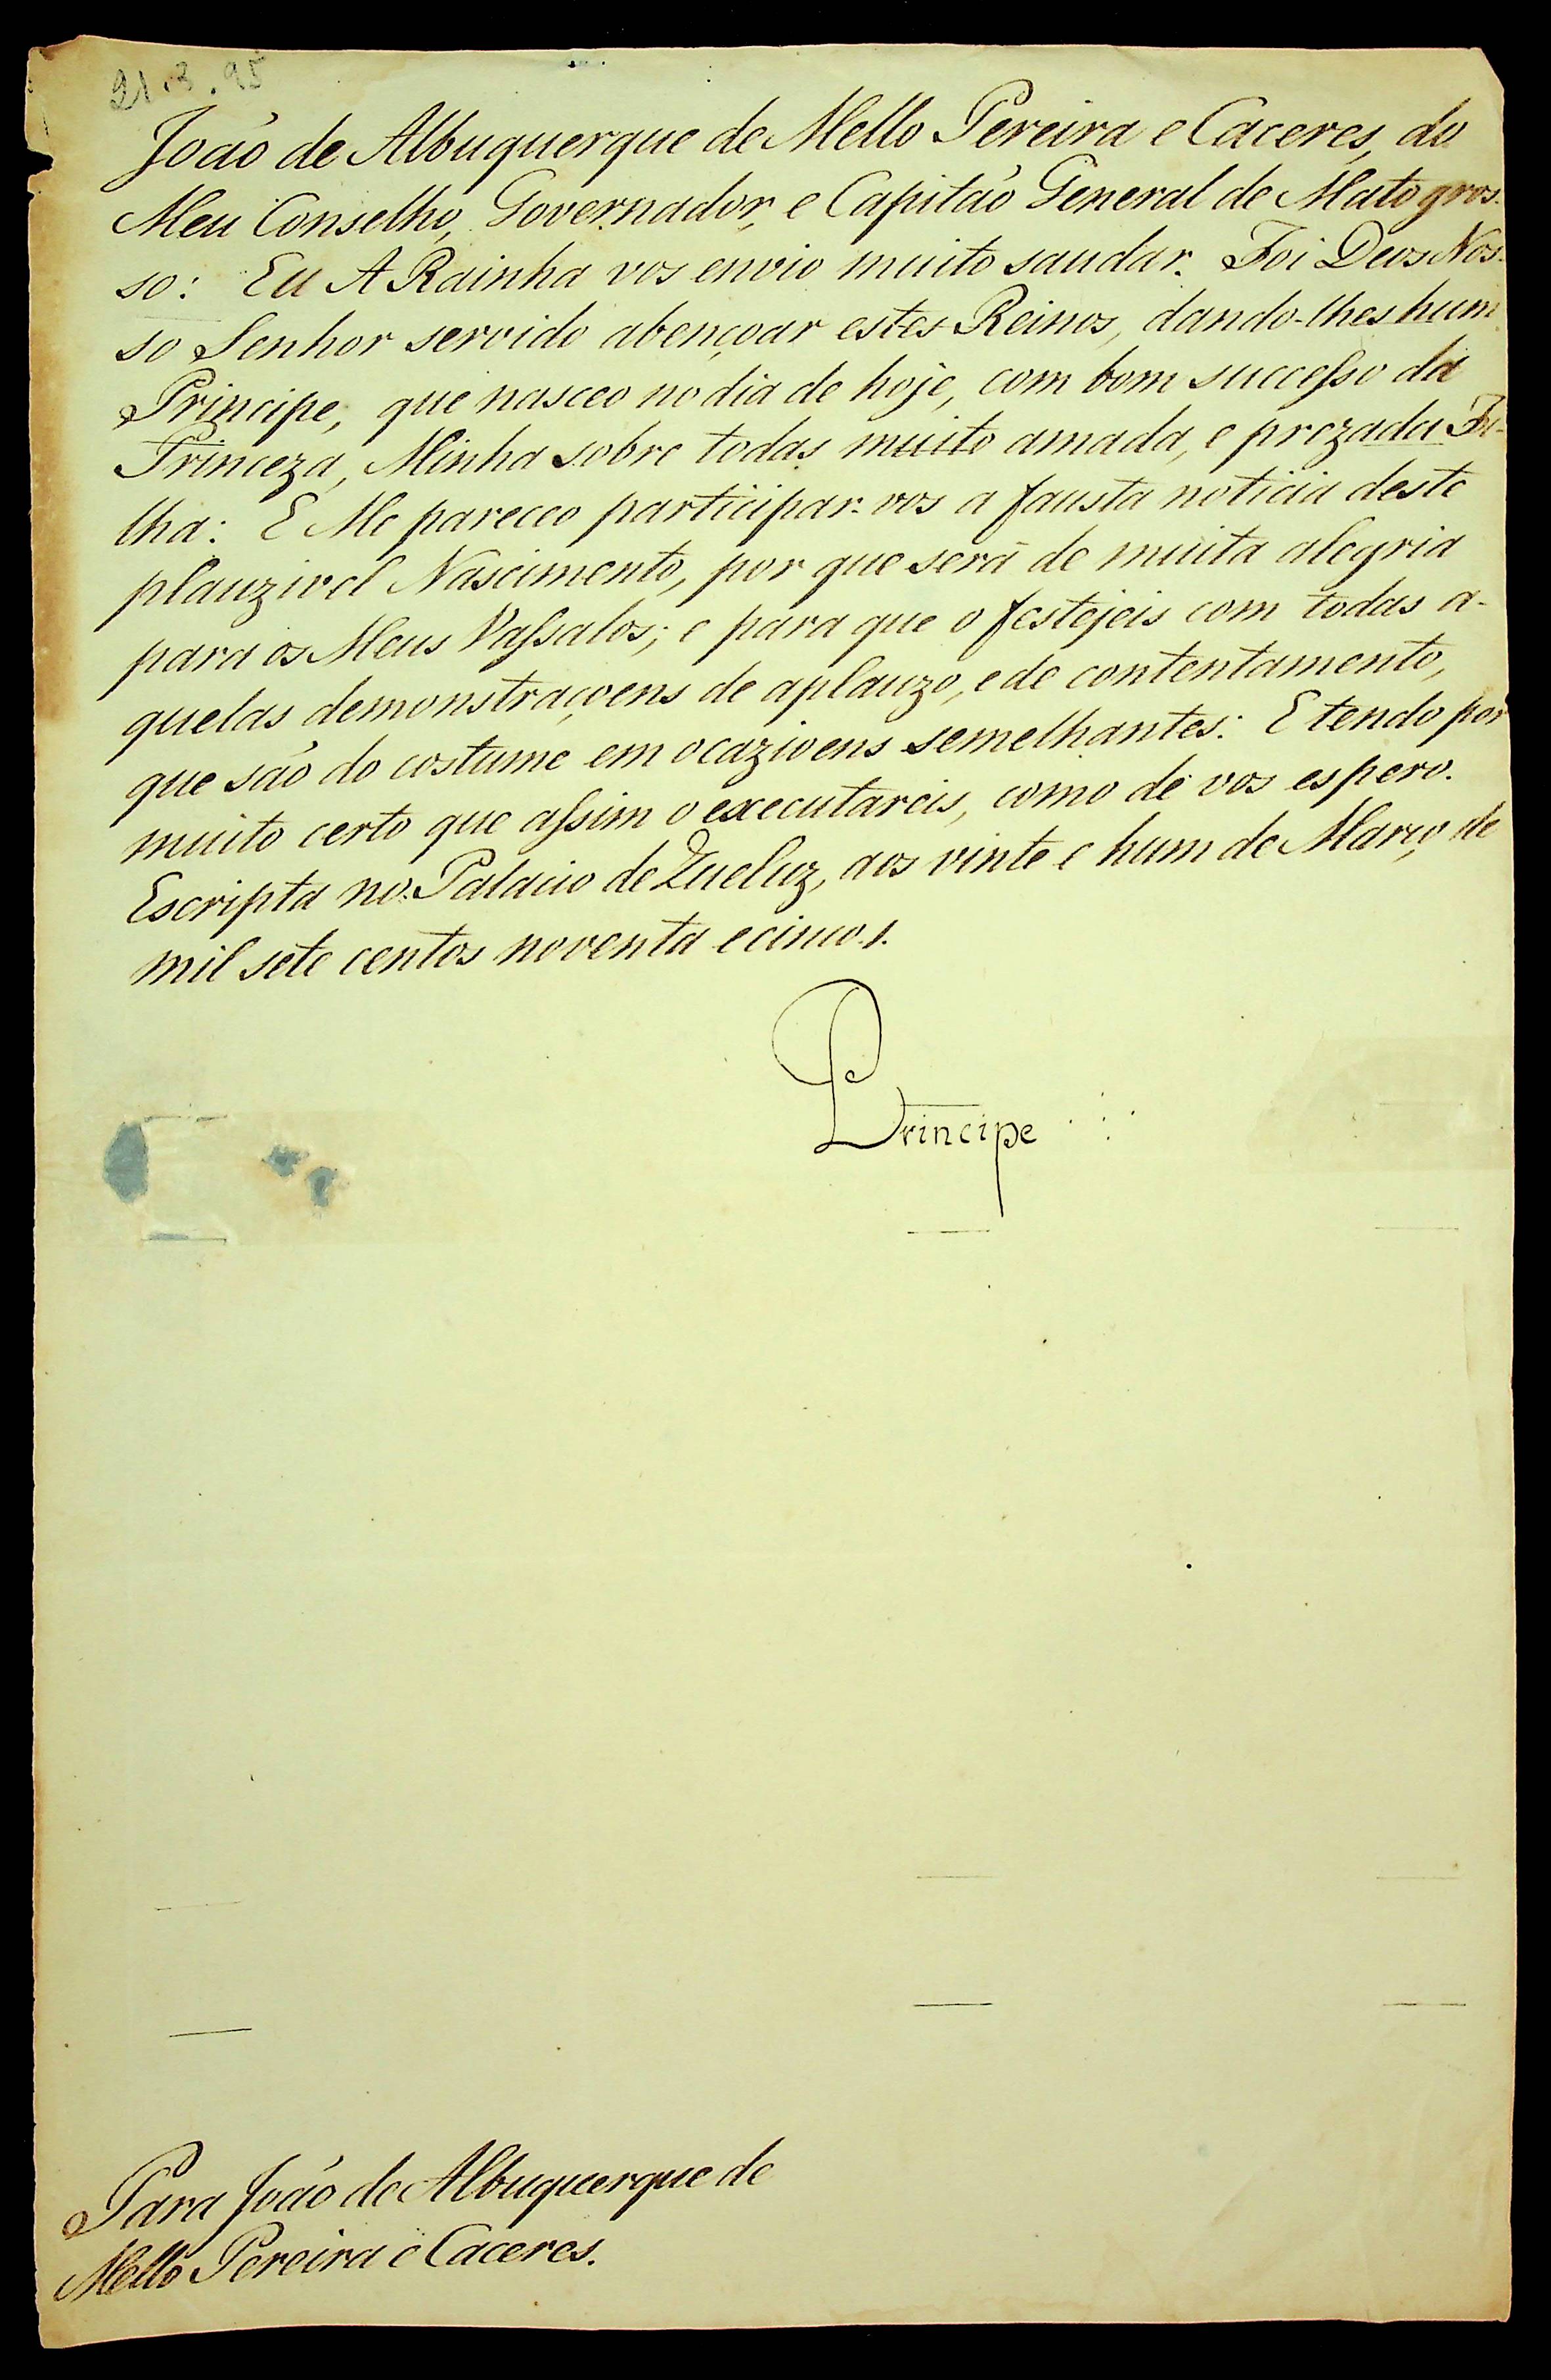 21.3.95
João de Albuquerque de Mello Pereira e Caceres, do
Meu Conselho, Governador, e Capitão General de Mato gros-
so: Eu A Rainha vos envio muito saudar. Foi Deos Nos-
so Senhor servido abençoar estes Reinos, dando-lhes hum
Principe, que nasceo no dia de hoje, com bom succeſso da
Princeza, Minha sobre todas muito amada, e prezada Fi-
lha: E Me pareceo participar-vos a fausta noticia deste
plauzivel Nascimento, por que será de muita alegria
para os Meus Vaſsalos; e para que o festejeis com todas a-
quelas demonstraçoens de aplauzo, e de contentamento,
que são do costume em ocazioens semelhantes: E tendo por
muito certo que aſsim o executareis, como de vos espero.
Escripta no Palacio de Queluz, aos vinte e hum de Março de
mil sete centos noventa e cinco.
Principe
Para João de Albuquerque de
Mello Pereira e Caceres.